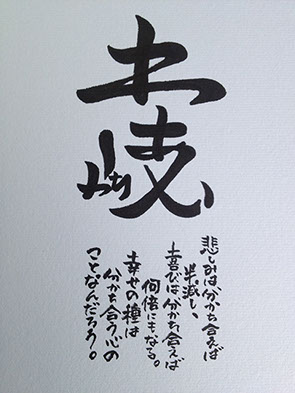 悲しみは分かち合えば
半減し、
喜びは分かち合えば
何倍にもなる。
幸せの種は
分かち合う心の
ことなんだろう。